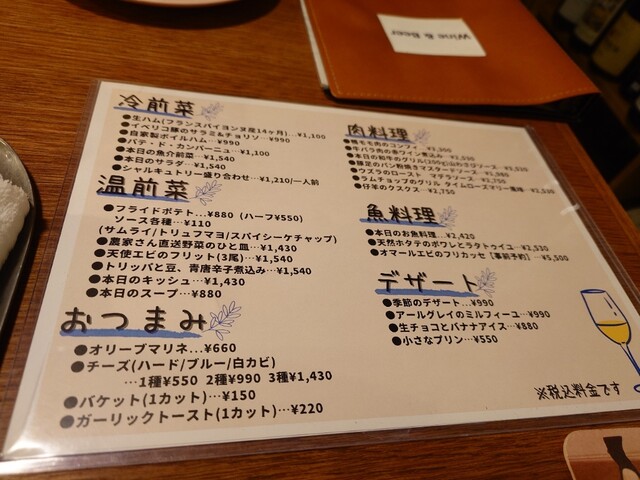 Wine & Beer
冷前菜
●生ハム(フランスバイヨンヌ産14ヶ月)…¥1,100
●イベリコ豚のサラミ&チョリソ…¥990
●自家製ボイルハム…¥990
●パテ・ド・カンパーニュ…¥1,100
●本日の魚介前菜…¥1,540
●本日のサラダ…¥1,540
●シャルキュトリー盛り合わせ…¥1,210/一人前
温前菜
●フライドポテト…¥880 (ハーフ¥550)
ソース各種…¥110
(サムライ/トリュフマヨ/スパイシーケチャップ)
●農家さん直送野菜のひと皿…¥1,430
●天使エビのフリット(3尾)…¥1,540
●トリッパと豆、青唐辛子煮込み…¥1,540
●本日のキッシュ…¥1,430
●本日のスープ…¥880
おつまみ
●オリーブマリネ...¥660
●チーズ(ハード/ブルー/白カビ)
…1種¥550 2種¥990 3種¥1,430
●バケット(1カット)…¥150
●ガーリックトースト(1カット)…¥220
肉料理
●鴨モモ肉のコンフィ…
●牛バラ肉の赤ワイン煮込み…
●本日の和牛のグリル
●豚足のパン粉焼きマスタードソース…
●ウズラのロースト マデラソース…
●ラムチョップのグリル タイムローズマリー風味…
●仔羊のクスクス…¥2,750
魚料理
●本日のお魚料理…¥2,420
●天然ホタテのポワレとラタトゥイユ…¥2,530
●オマールエビのフリカッセ【事前予約】…¥5,500
デザート
●季節のデザート…¥990
●アールグレイのミルフィーユ…¥990
●生チョコとバナナアイス…¥880
●小さなプリン…¥550
※税込料金です